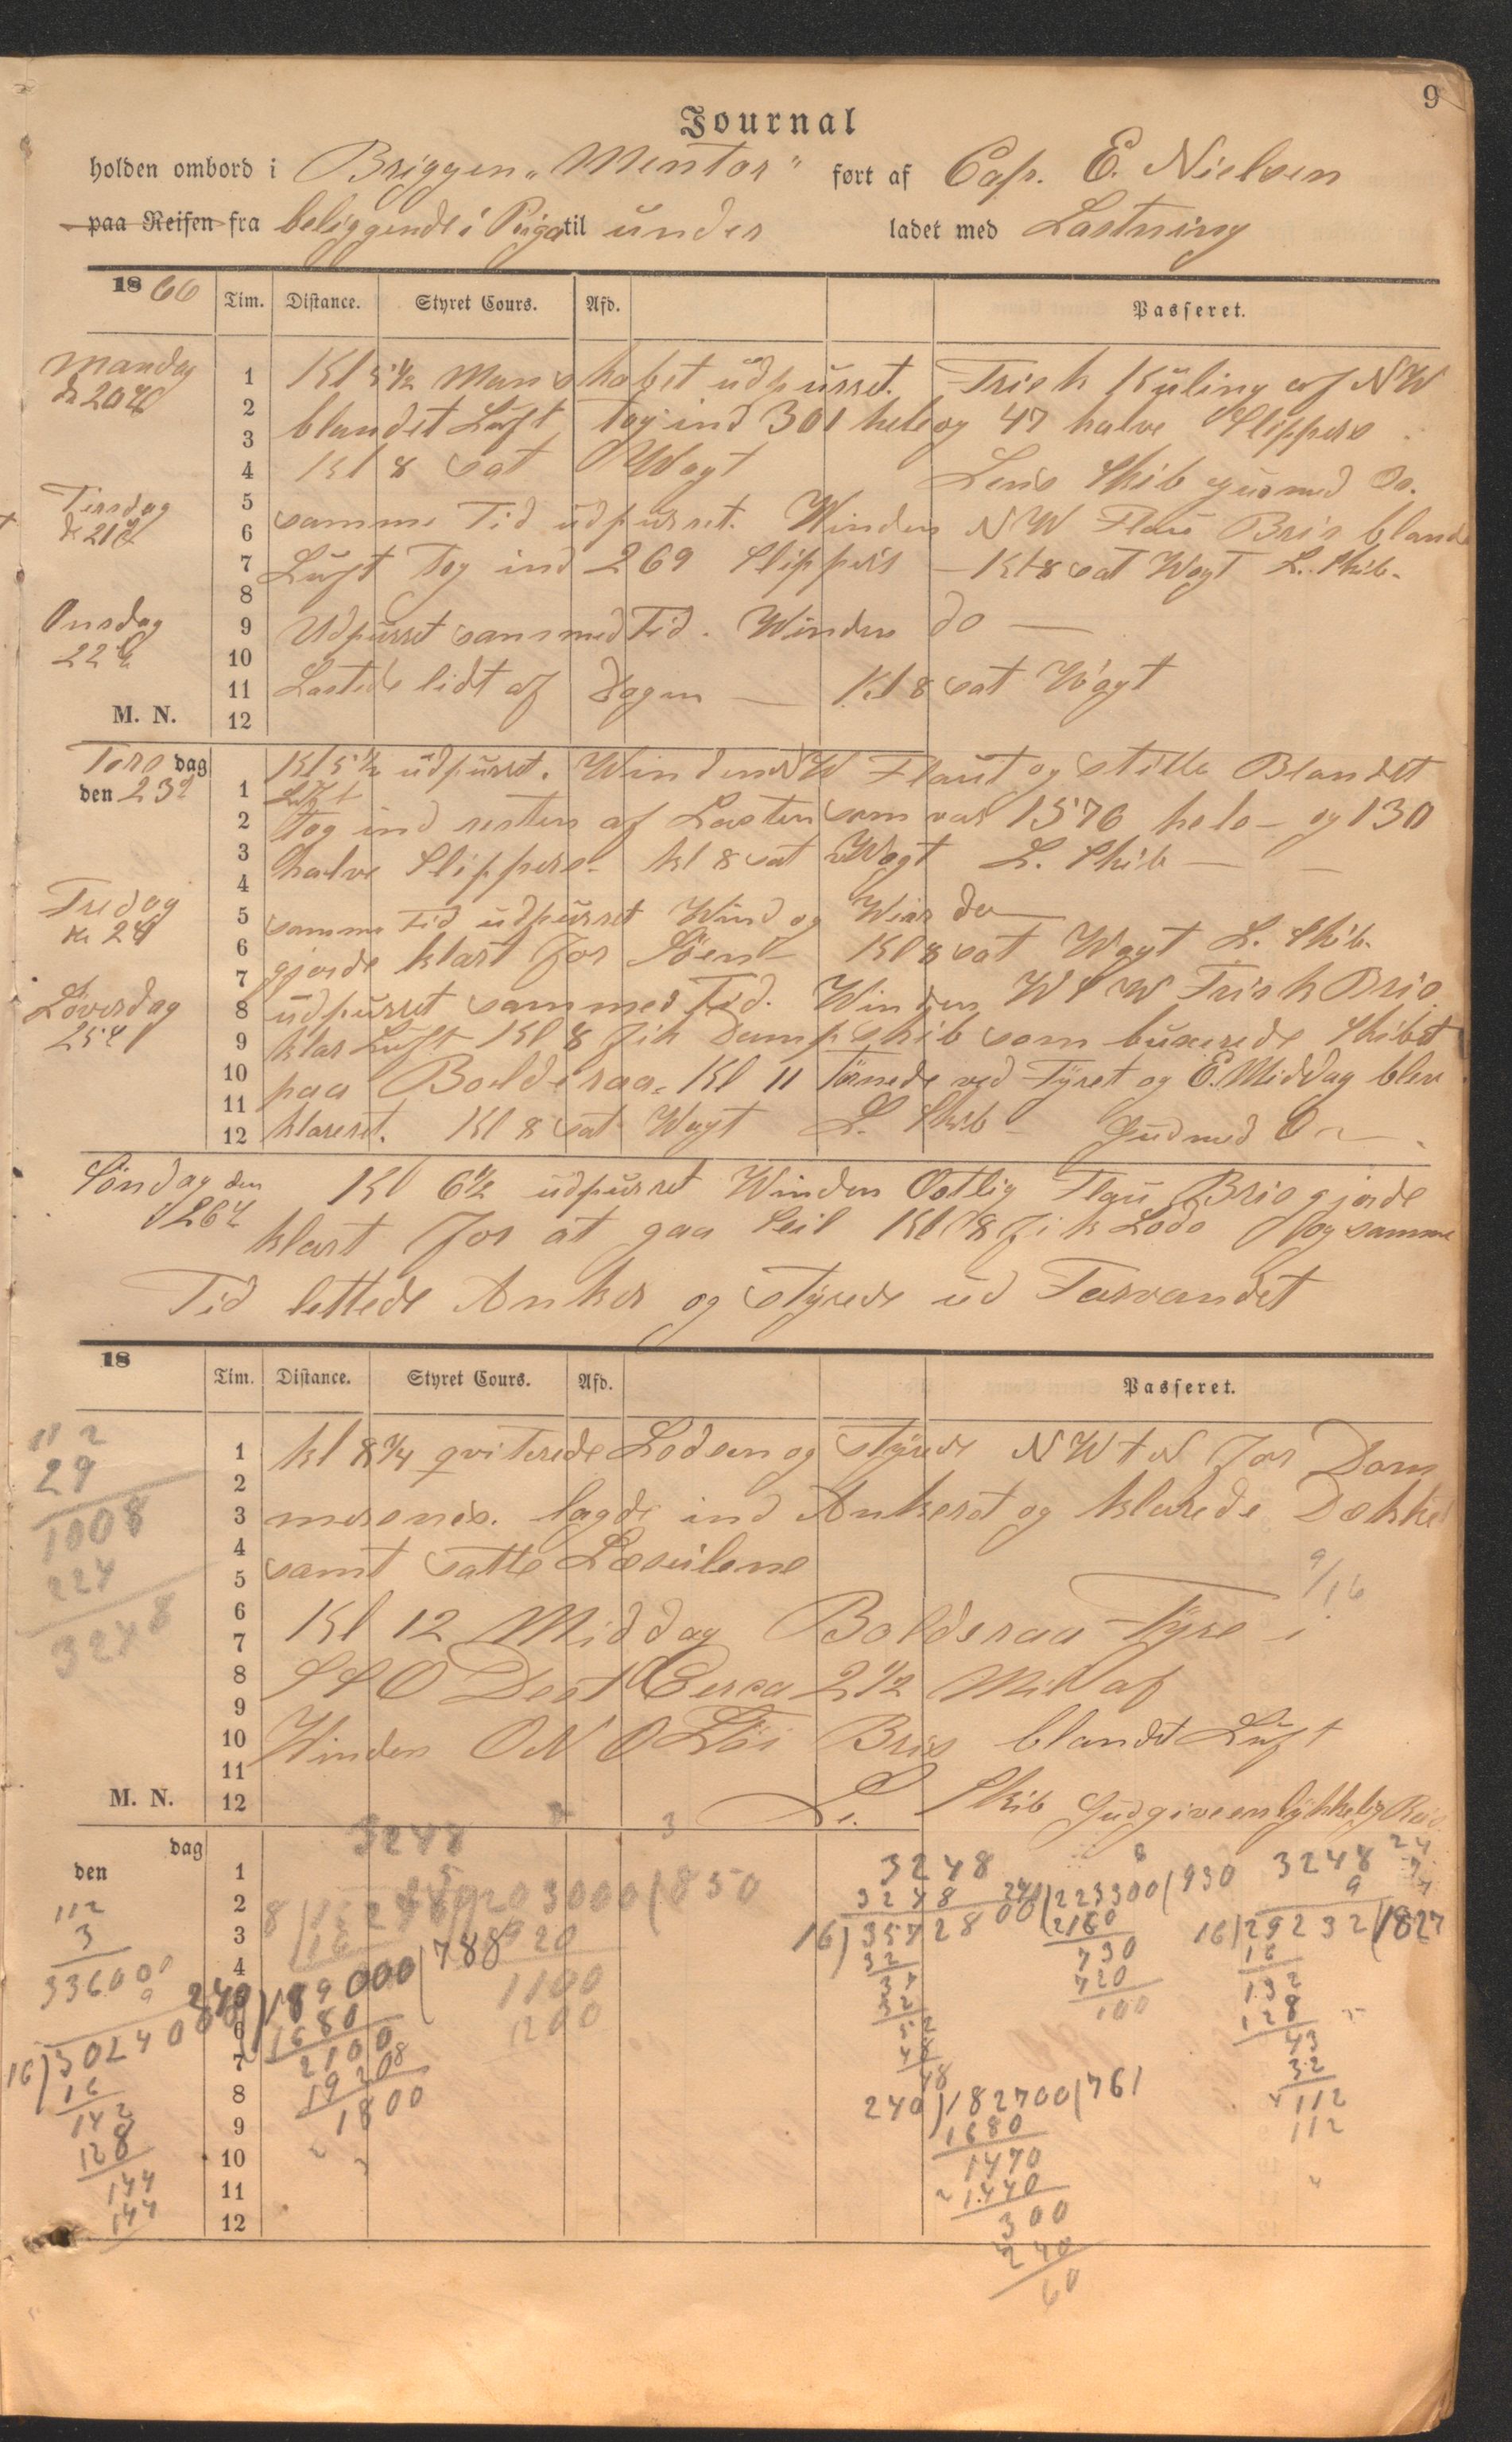 9
Journal
holden ombord i Briggen „Mentor" ført af Cap. E. Nielsen
paa Reisen fra beliggende i Riga til under ladet med Lastning
1866 Tim. Distance. Styret Cours. Afd. Passeret.
Mandag
d 20de
Kl 5 1/2 Mandskabet udpurret. Frisk Kuling af NW
blandet Luft tog ind 301 hele og 47 halve Slippers
Kl 8 sat Wagt Lens Skib Gud med Os.
Tirsdag
d 21d
samme Tid udpurret. Winden NW Flau Bris blandt
Luft Tog ind 269 Slippers – Kl 8 sat Wagt L. Skib –
Onsdag
22d
Udpurret sammed Tid. Winden do —
Lastede lidt af Dagen — Kl 8 sat Wagt
M. N.
1
2
3
4
5
6
7
8
9
10
11
12
Torsdag
den 23d
Kl 5 1/2 udpurret. Winden NW Flaut og stille Blandet
Luft
tog ind resten af Lasten som var 1576 hele – og 130
halve Slippers – kl 8 sat Wagt L. Skib —
Fredag
d 24
samme Tid udpurret Wind og Weir do —
gjorde klart for Söen – Kl 8 sat Wagt L. Skib –
Löverdag
25d
udpurret sammed Tid. Winden WSW Frisk Bris
klar Luft Kl 8 fik Dampskib som buxerede Skibet
paa Bolderaa. Kl 11 törnede ved Fyret og E. Middag blev
klareret. Kl 8 sat Wagt L. Skib – Gud med O
1
2
3
4
5
6
7
8
9
10
11
12
Söndag den
26d
Kl 6 1/2 udpurret Winden Ostlig Flau Bris gjorde
klart for at gaa Seil Kl 8 fik Lods og samme
Tid lettede Anker og styrede ud Farvandet
18 Tim. Distance. Styret Cours. Afd. Passeret.
kl 8 3/4 qviterede Lodsen og styrede NWtN for Dom
mesnes. lagde ind Ankerst og klarede Dækket
samt satte Læseilene
9/16
Kl 12 Middag Bolderaa Fyre i
SSO Dest Cersa 2 1/2 Mil af
Winden ONO Löi Bris blandet Luft
L. Skib Gud give en lykkelig Reis
M. N.
1
2
3
4
5
6
7
8
9
10
11
12
112
29
1008
224
3248
dag
den
1
2
3
4
5
6
7
8
9
10
11
12
112
3
336000
9
16)302400
16
142
128
144
144
3248
203000(850
920
1100
1200
240)189000(788
1680
2100
1920
1800
3248
3248
16)35728
32
37
32
52
48
48
240)223300(930
2160
730
720
100
240)182700(761
1680
1470
1440
300
240
60
3248
9
16)29232(1827
16
132
128
43
32
112
112
24